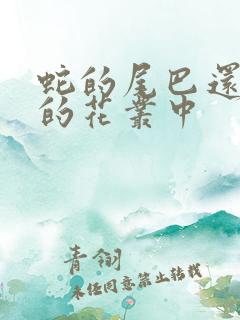 蛇的尾巴還
的花叢中
青翎
未经同意禁止转载